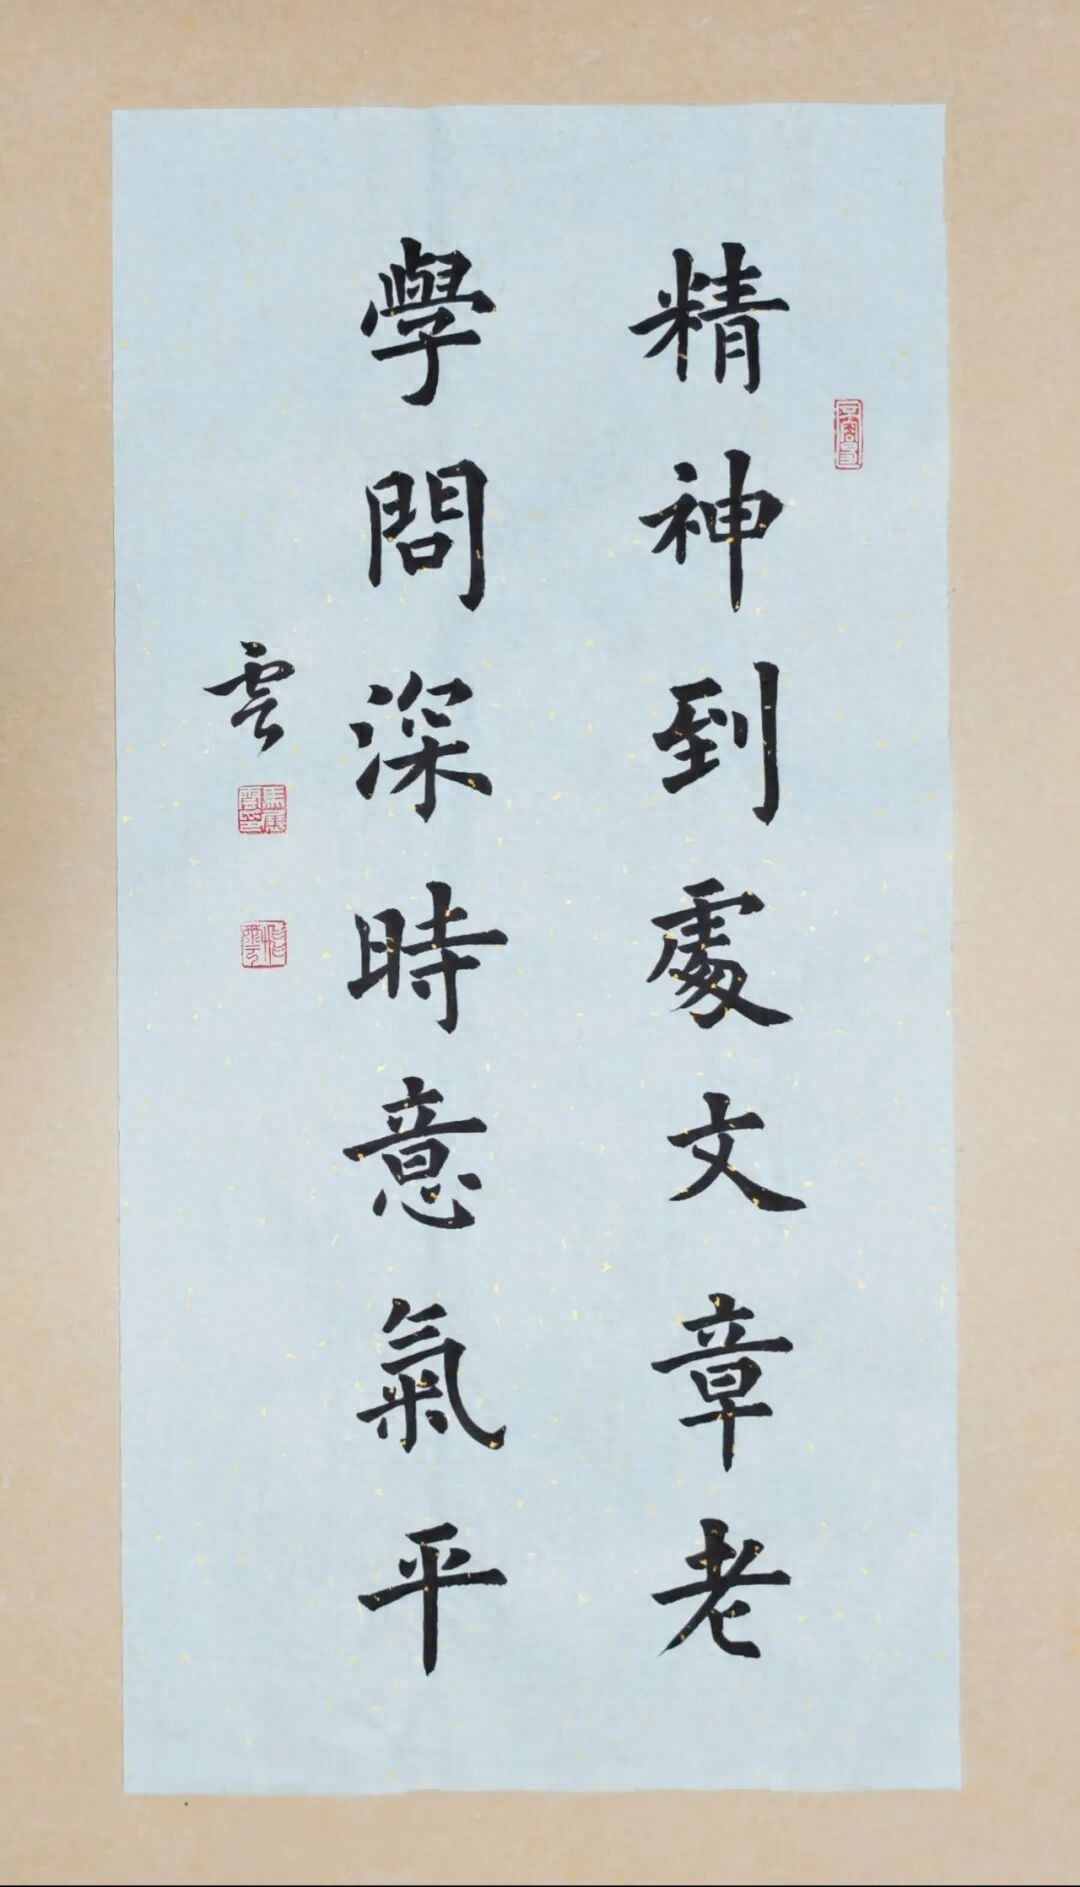 精神到處文章老
學問深時意氣平
雲